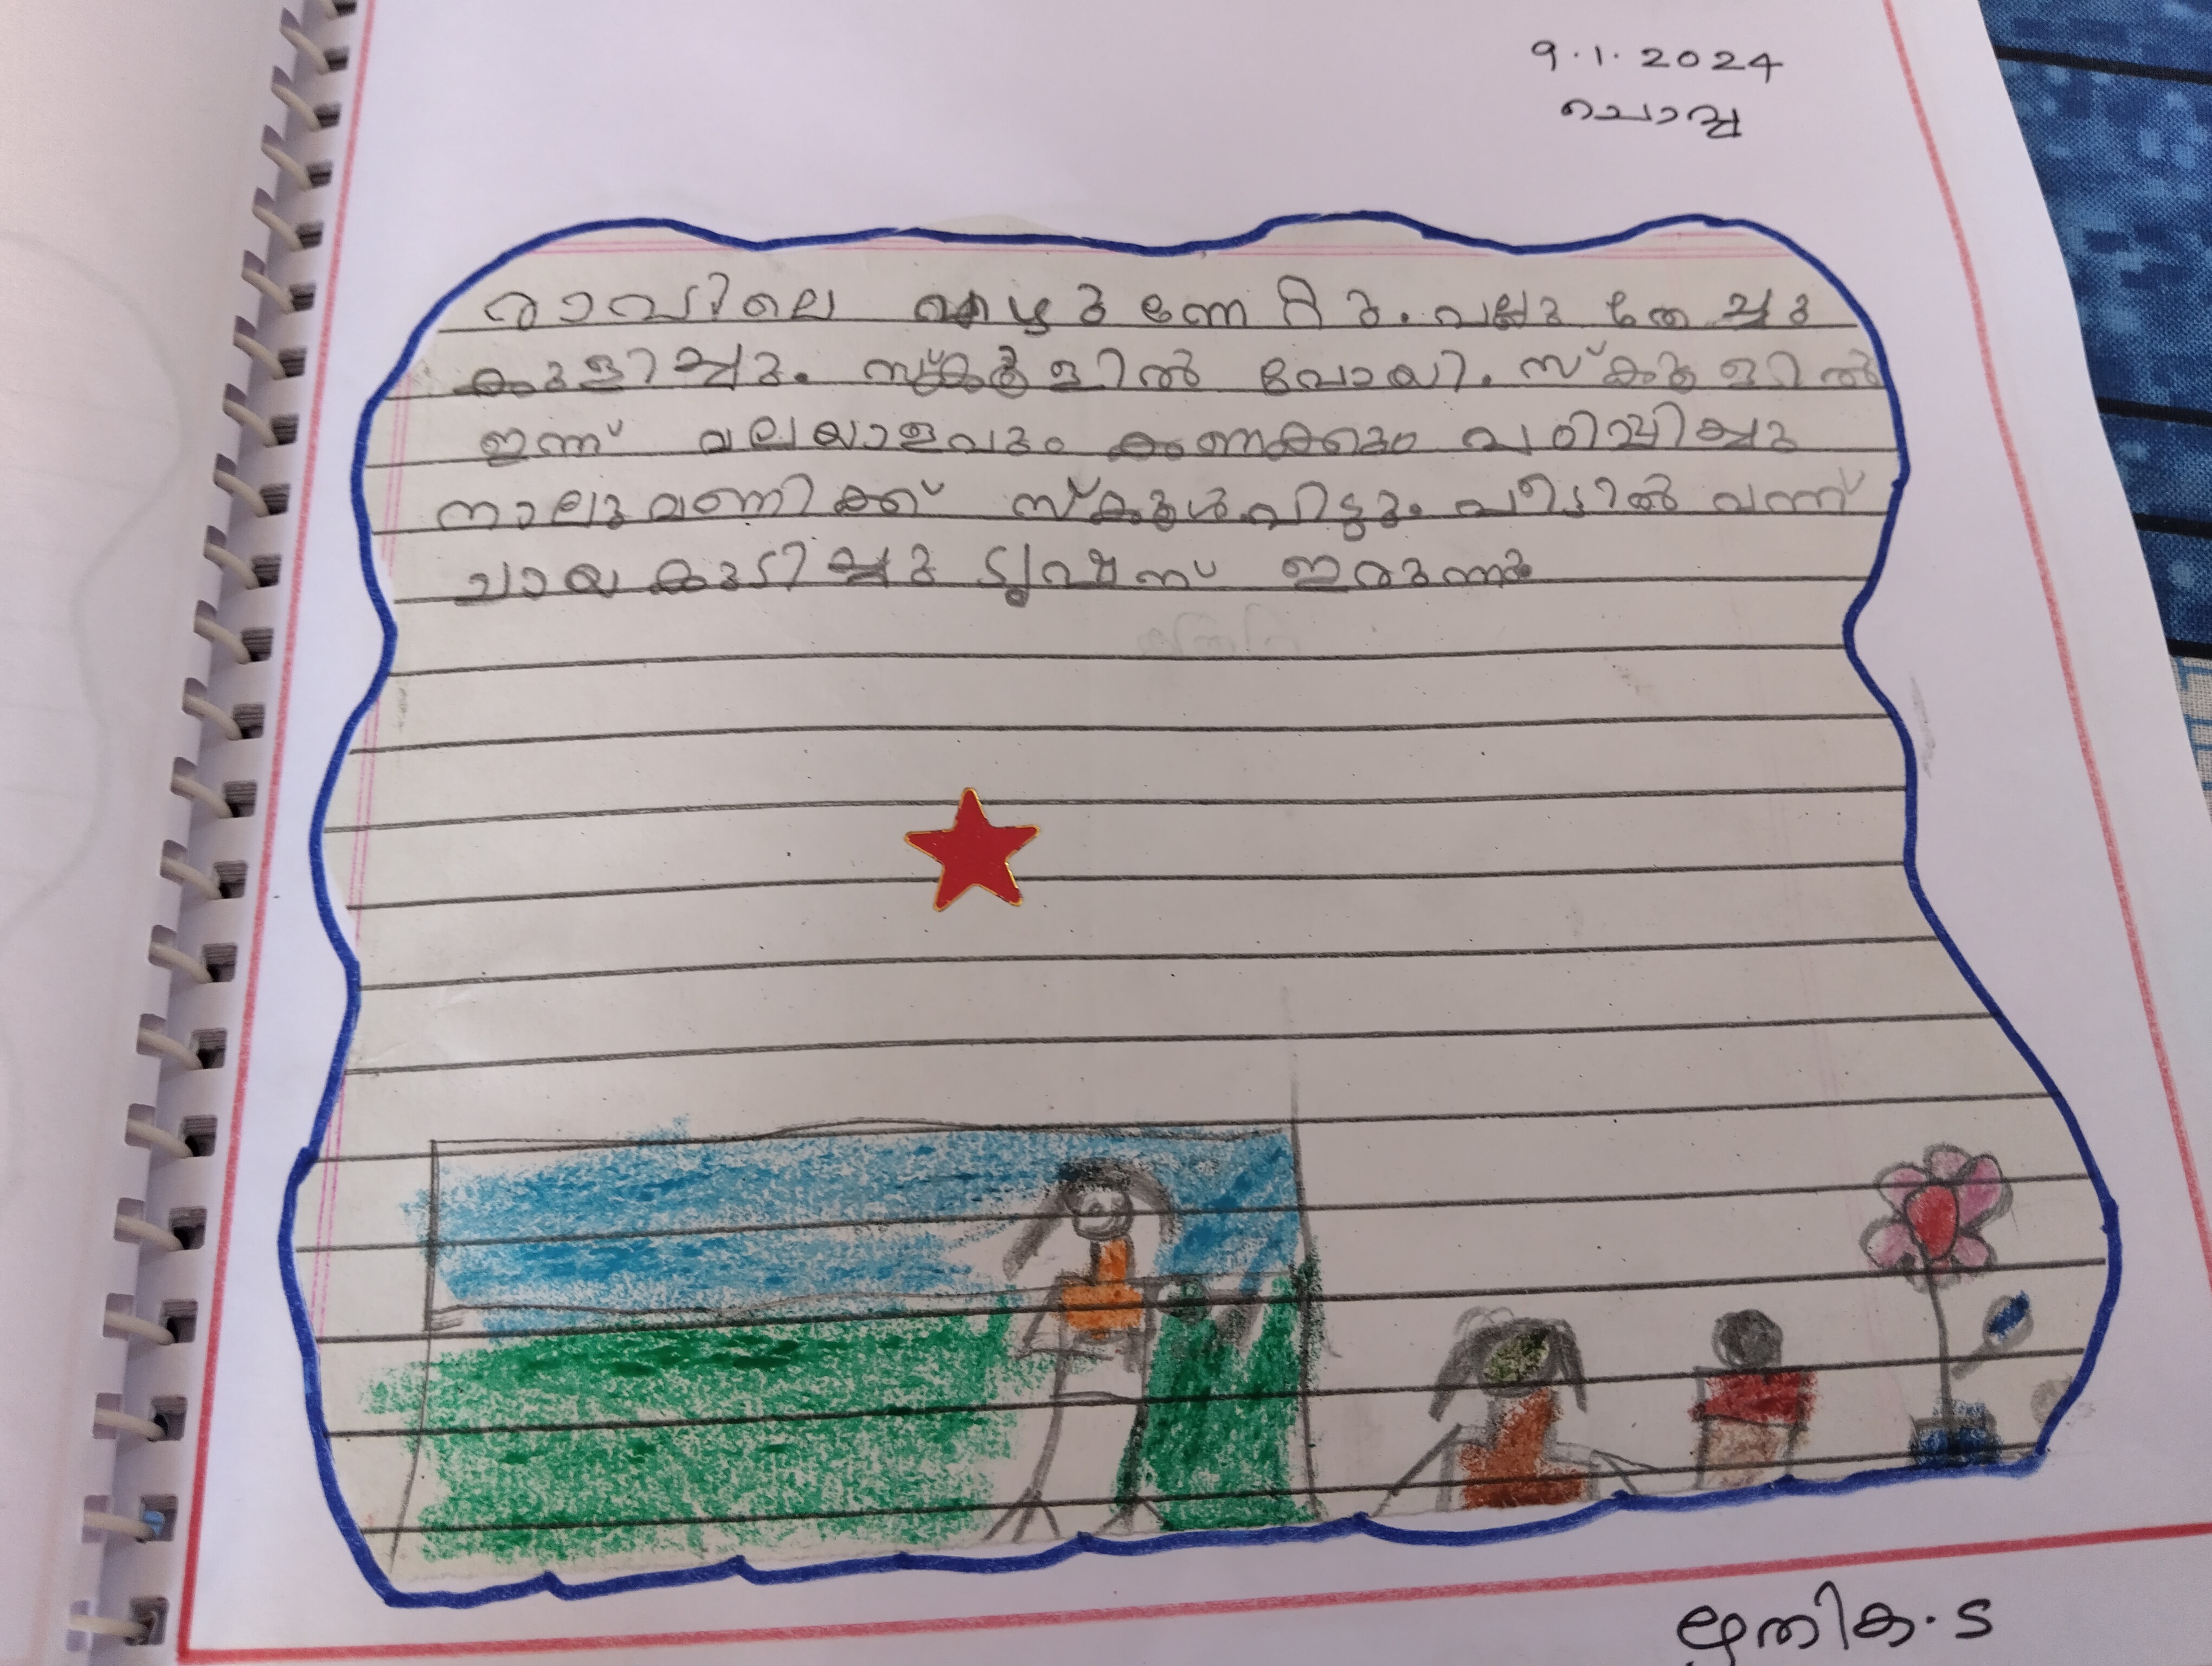 9.1.2024
ചൊവ്വ
രാവിലെ എഴുന്നേറ്റു. പല്ലു തേച്ചു
കുളിച്ചു. സ്കൂളിൽ പോയി. സ്കൂളിൽ
ഇന്ന് മലയാളവും കണക്കും പഠിപ്പിച്ചു
നാലുമണിക്ക് സ്കൂൾവിട്ടു. വീട്ടിൽ വന്ന്
ചായകുടിച്ചു ട്യൂഷന് ഇരുന്നു.